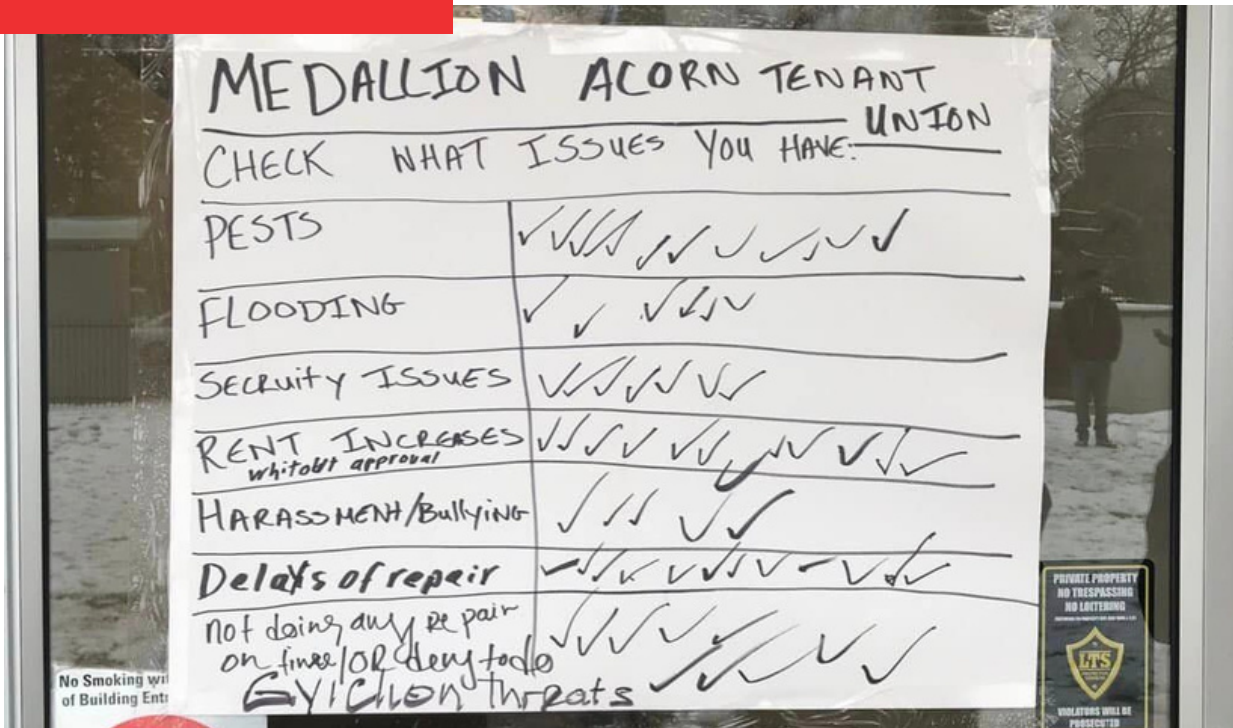 MEDALLION ACORN TENANT
UNION
CHECK WHAT ISSUES YOU HAVE:
PESTS
FLOODING
SECRUITY ISSUES
RENT INCREASES
whitout approval
HARASSMENT/BullyING
Delays of repair
not doing any repair
on time/OR deny todo
EVICtion thrEats
No Smoking wi
of Building Ent
PRIVATE PROPERTY
NO TRESPASSING
NO LOITERING
LTS
VIOLATORS WILL BE
PROSECUTED